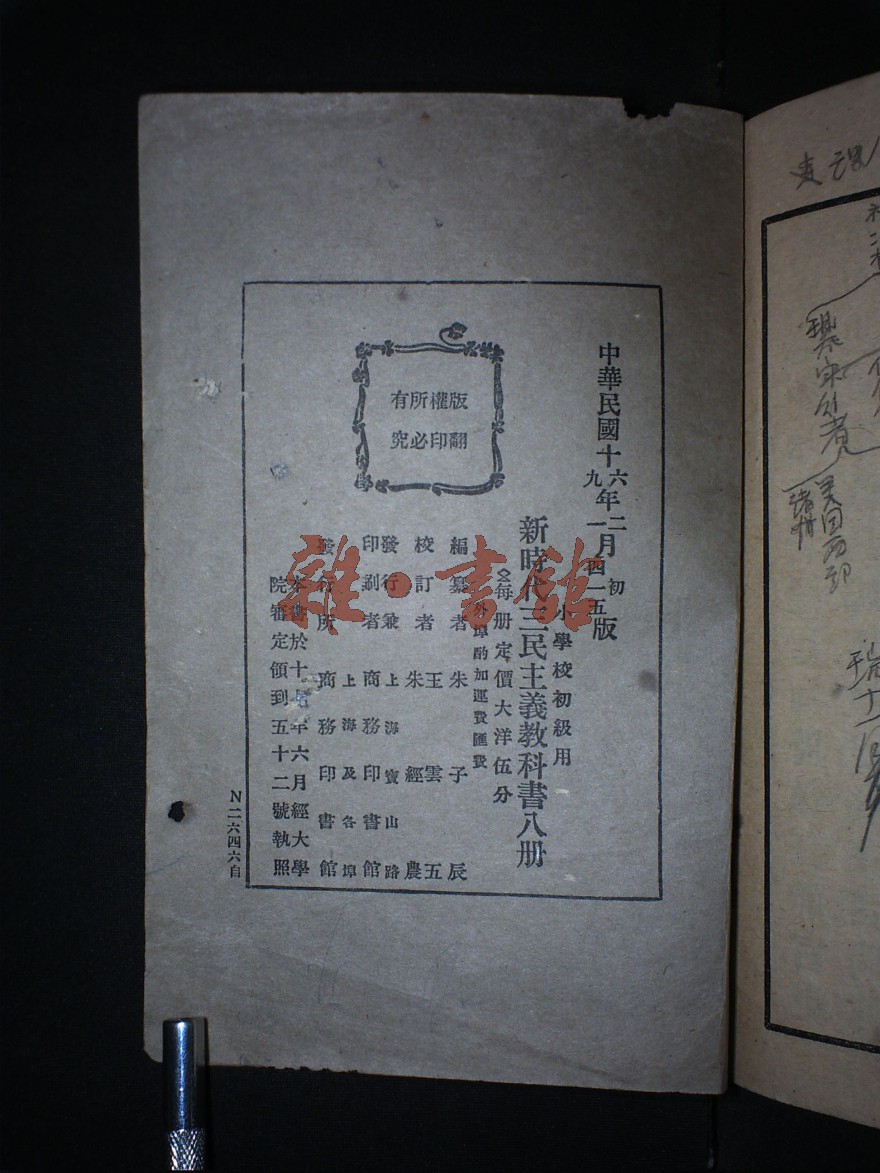 中華民國十六年二月初版
九年一月四一五版
小學校初級用
新時代三民主義教科書八册
每册定價大洋伍分
外埠酌加運費匯費
編纂者 朱子辰
校訂者 王雲五
朱經農
發行兼印刷者 上海寶山路
商務印書館
發行所 上海及各埠
商務印書館
版權所有
翻印必究
本書於十七年六月經大學
院審定領到五十二號執照
N二六四六自
雜·書館